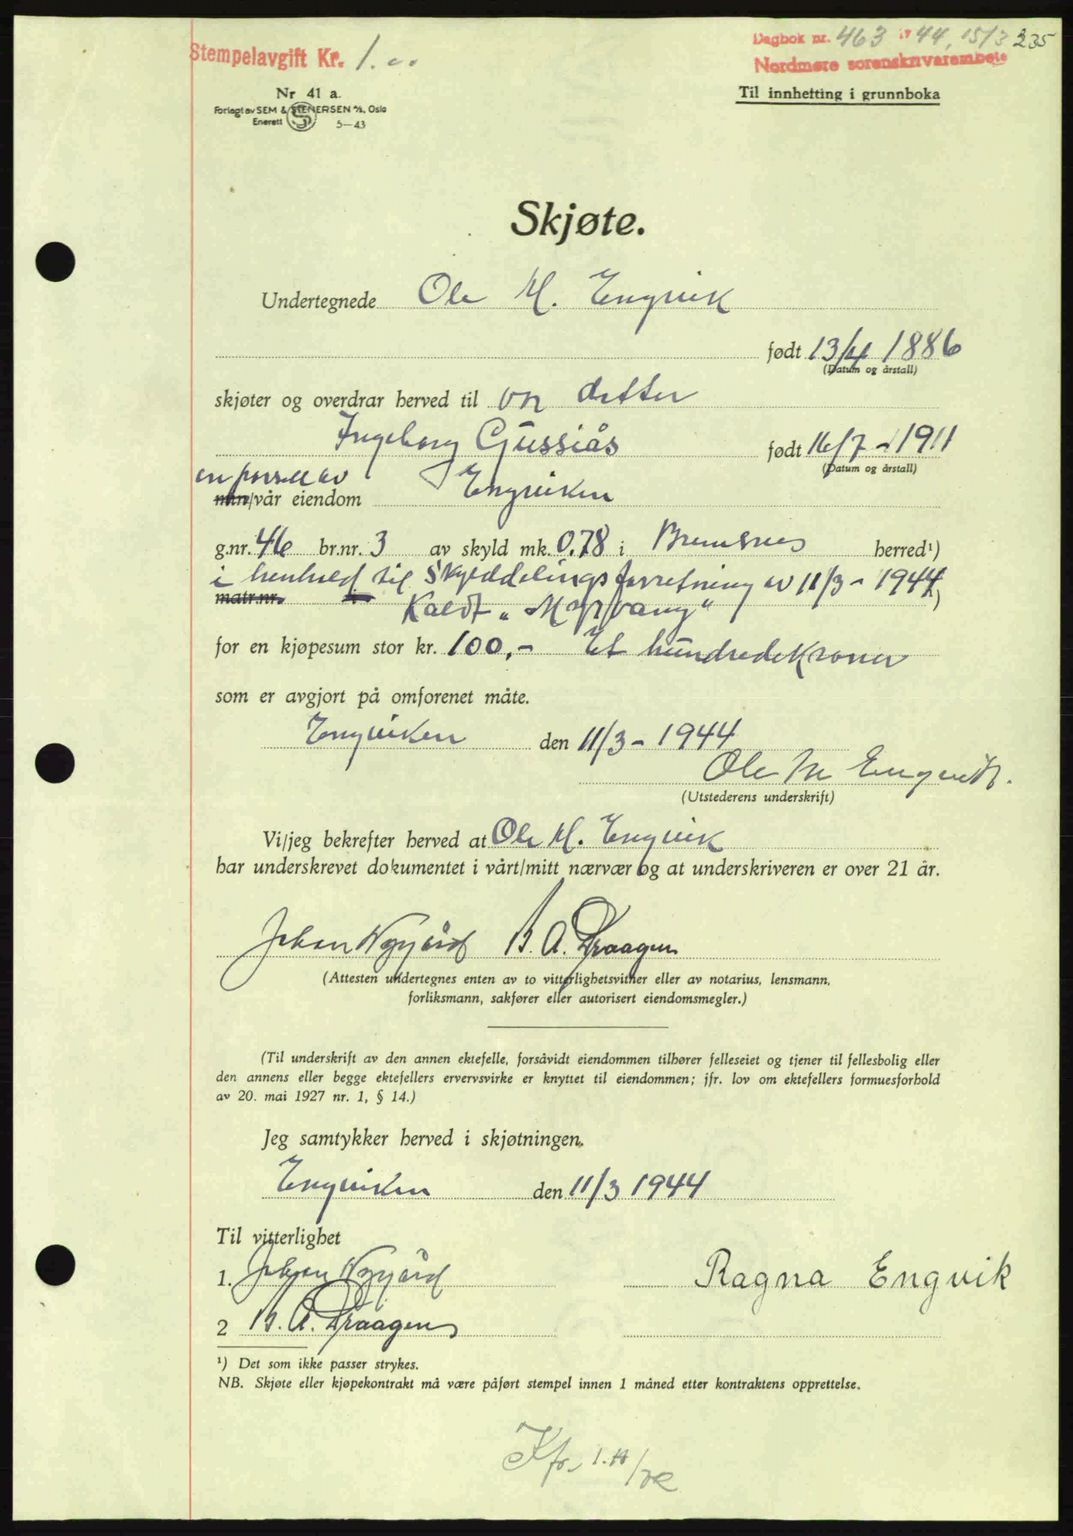 Stempelavgift Kr. 1.00
Dagbok nr. 463 1944, 15/3 235
Nordmøre sorenskriverembete
Nr 41 a.
Forlagt av SEM & STENERSEN A/S, Oslo
Enerett 5-43
Til innhefting i grunnboka
Skjøte.
Undertegnede Ole M. Engvik
født 13/4 1886
(Datum og årstall)
skjøter og overdrar herved til vor datter
Ingeborg Gussiås født 16/7 - 1911
(Datum og årstall)
en parsell av
min/vår eiendom Engviken
g.nr. 46 br.nr. 3 av skyld mk. 0.78 i Bremsnes herred¹)
i henhold til Skylddelingsforretning av 11/3 - 1944
matr.nr. i )
Kaldt „ "
for en kjøpesum stor kr. 100,- Et hundredekroner
som er avgjort på omforenet måte.
Engviken den 11/3 - 1944
Ole M Engvik.
(Utstederens underskrift)
Vi/jeg bekrefter herved at Ole M. Engvik
har underskrevet dokumentet i vårt/mitt nærvær og at underskriveren er over 21 år.
Johan Nygård B. A. Draagen
(Attesten undertegnes enten av to vitterlighetsvitner eller av notarius, lensmann,
forliksmann, sakfører eller autorisert eiendomsmegler.)
(Til underskrift av den annen ektefelle, forsåvidt eiendommen tilhører felleseiet og tjener til fellesbolig eller
den annens eller begge ektefellers ervervsvirke er knyttet til eiendommen; jfr. lov om ektefellers formuesforhold
av 20. mai 1927 nr. 1, § 14.)
Jeg samtykker herved i skjøtningen.
Engviken den 11/3 1944
Til vitterlighet
1. Johan Nygård Ragna Engvik
2 B. A. Draagen
¹) Det som ikke passer strykes.
NB. Skjøte eller kjøpekontrakt må være påført stempel innen 1 måned etter kontraktens opprettelse.